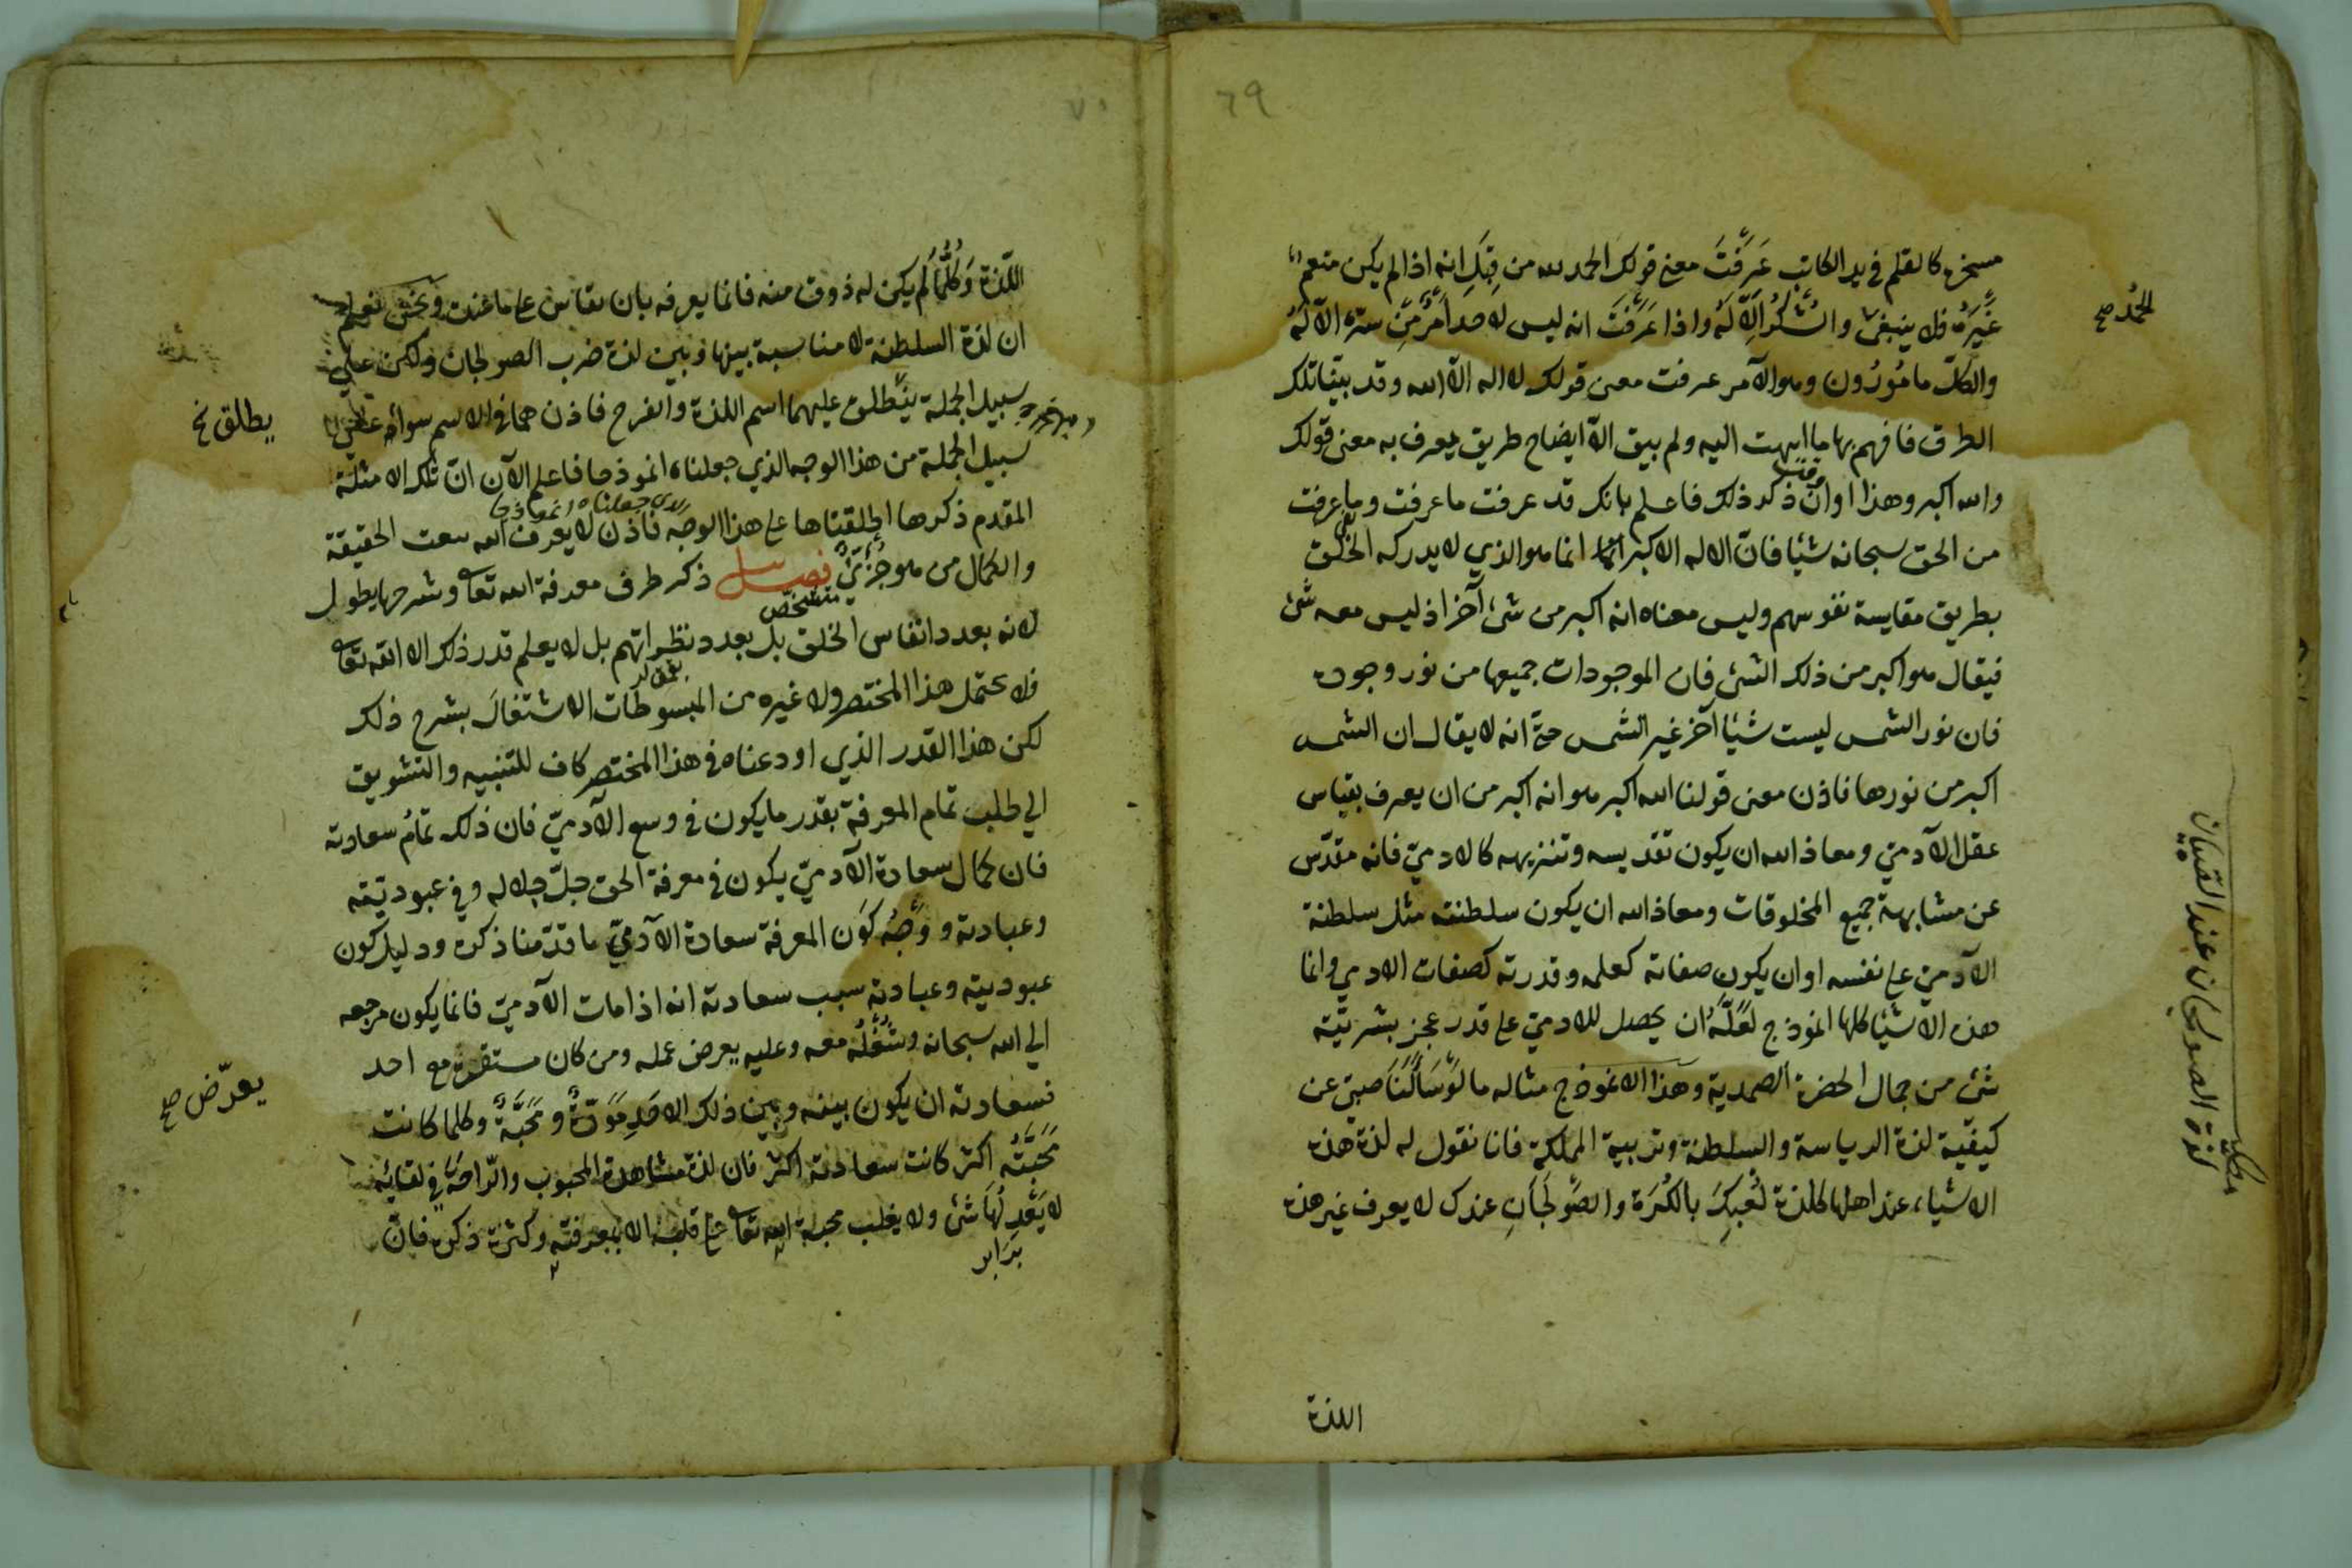 ٦٩
مسخره كالقلم في يد الكاتب عَرَفْتَ معنى قولك الحمد لله من قِبَلِ انه اذا لم يكن منعم
غَيْرَهُ فلا ينبغي والشُكْرُ اِلّا لَهُ واذا عَرَفْتَ انه ليس لاحد اَمْرٌ مِن سِرّه الّا لَهُ
والكلّ مامُورُون وهو الآمر عرفت معنى قولك لا اله الّا الله وقد بيّنا تلك
الطرق فافهم بها ما انبهت اليه ولم يبق الّا ايضاح طريق يعرف به معنى قولك
والله اكبر وهذا اوانُ ذكر ذلك فاعلم بانك قد عرفت ما عرفت وما عرفت
وقت
من الحق سبحانه شيئا فانّ الاله الاكبر انما هو الذي لا يدركه الخلق
بطريق مقايسة نفوسهم وليس معناه انه اكبر من شئ آخر اذ ليس معه شئ
فيقال هو اكبر من ذلك الشئ فان الموجودات جميعها من نور وجوده
فان نور الشمس ليست شيئا آخر غير الشمس حتى انه لا يقال ان الشمس
اكبر من نورها فاذن معنى قولنا الله اكبر هو انه اكبر من ان يعرف بقياس
عقل الآدميّ ومعاذ الله ان يكون تقديسه وتنزيهه كالادميّ فانه مقدّس
عن مشابهة جميع المخلوقات ومعاذ الله ان يكون سلطنته مثل سلطنة
الآدميّ على نفسه او ان يكون صفاته كعلمه وقدرته كصفات الادمي وانما
هذه الاشيا كلها انموذج لَعَلَّهُ ان يحصل للادميّ على قدر عجز بشريّته
شئ من جمال الحضرة الصمدية وهذا الانموذج مثاله ما لَوْ سَاَلَنَا صبيّ عن
كيفيّة لذة الرياسة والسلطنة وتربية المملكة فانا نقول له لذة هذه
الاشياء عند اهلها كلذة لُعْبِكَ بالكُرَة والصَوْلَجَانِ عندك لا يعرف غير هذه
اللذة
الحمدُ صح
كلذة الصولجان عند القبيان
٧٠
اللّذة وَكُلُّمَا لم يكن له ذوق منه فانما يعرفه بان يقاس على ما عنده ونحن نعلم
ان لذة السلطنة لا مناسبة بينها وبين لذة ضرب الصولجان ولكن على
سبيل الجملة ينطلق عليهما اسم اللذة والفرح فاذن هما في الاسم سواء على
سبيل الجملة من هذا الوجه الذي جعلناه انموذجا فاعلم الآن انّ تلك الامثلة
المقدم ذكرها اطلقناها على هذا الوجه فاذن لا يعرف الله بنعت الحقيقة
الذي جعلناه انموذجا
والكمال من هو جُزئيٌ فصل ذكر طرف معرفة الله تعالى وشرحها يطول
متشخّص
لانه بعدد انفاس الخلق بل بعدد نظراتهم بل لا يعلم قدر ذلك الا الله تعالى
فلا يحتمل هذا المختصر ولا غيره من المبسوطات الاشتغالَ بشرح ذلك
لكن هذا القدر الذي اودعناه في هذا المختصر كاف للتنبيه والتشويق
الي طلب تمام المعرفة بقدر ما يكون في وسع الآدميّ فان ذلك تمامُ سعادته
فان كمال سعادة الآدميّ يكون في معرفة الحق جلّ جلاله وفي عبوديّته
وعبادته ووَجْهُ كَوْن المعرفة سعادة الآدميّ ما قدّمنا ذكره ودليل كون
عبوديته وعبادته سبب سعادته انه اذا مات الآدميّ فانما يكون مرجعه
الي الله سبحانه وشُغْلُهُ معه وعليه يعرض عمله ومن كان مستقره مع احد
فسعادته ان يكون بينه وبين ذلك الاحَدِ مَوَدّةٌ ومَحَبَّةٌ وكلما كانت
مَحَبَّتُه اكثر كانت سعادته اكثر فان لذة مشاهدة المحبوب والرّاحَةَ في لقائه
لا يَعْدِلُهَا شئ ولا يغلب محبة الله تعالى على قلبه الا بمعرفته وكثرة ذكره فانّ
بَرَابر
يطلق خ
يعرّض صح